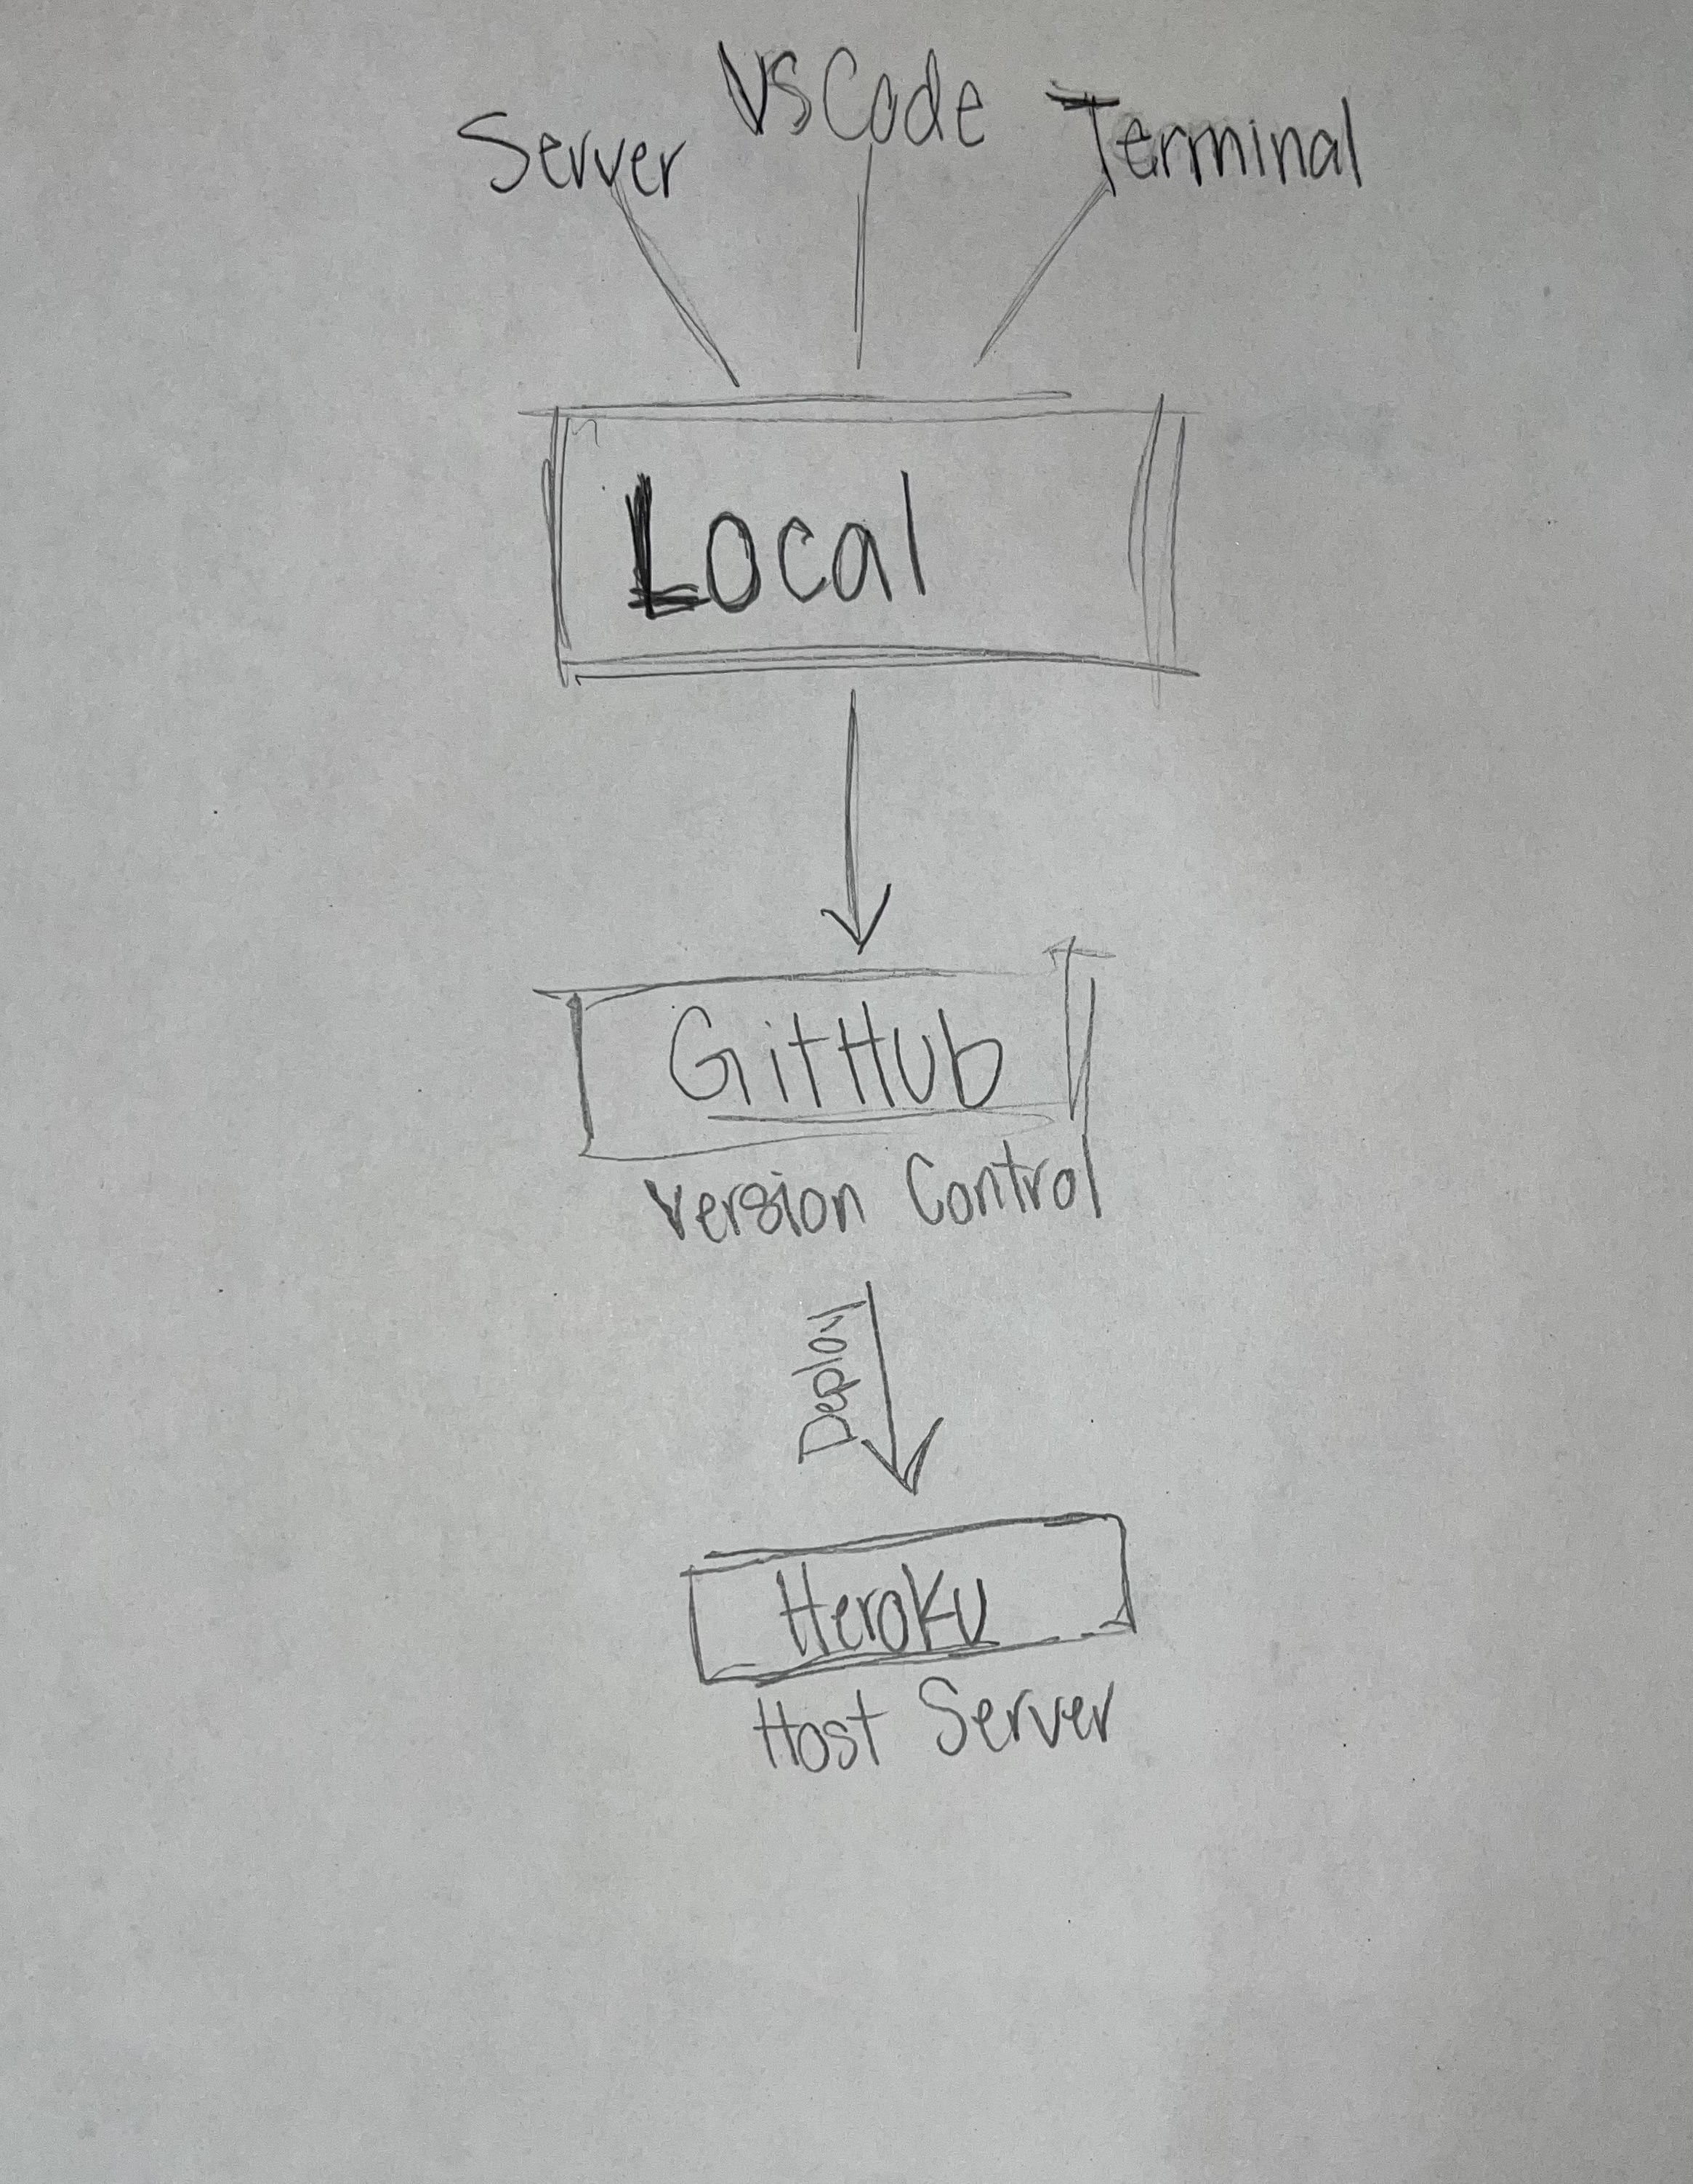 Server
VSCode
Terminal
Local
GitHub
Version Control
Deploy
Heroku
Host Server